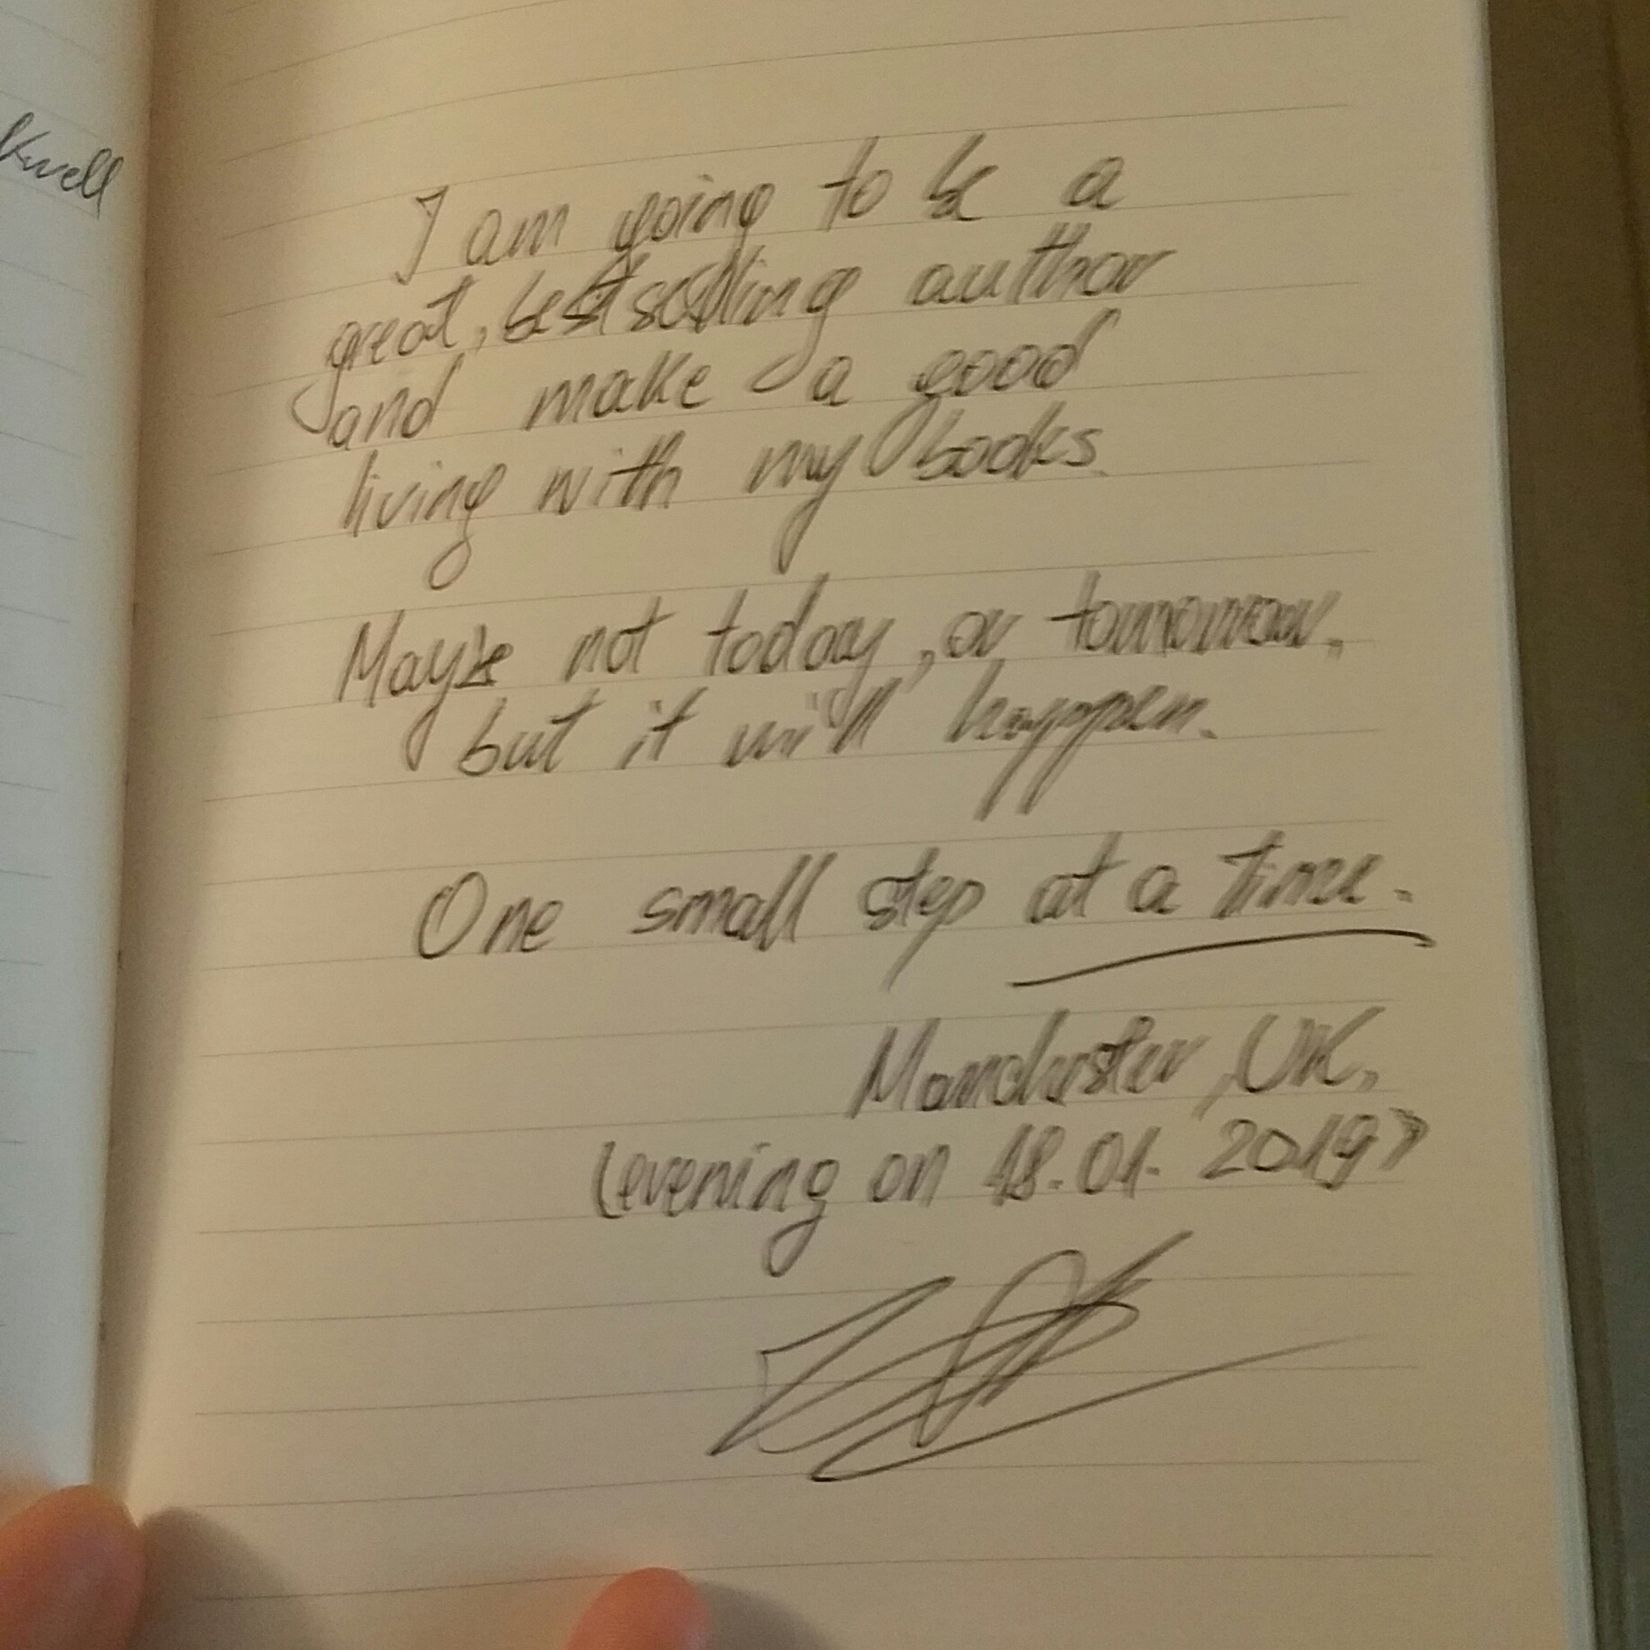 kwell
I am going to be a
great, bestselling author
and make a good
living with my books.
Maybe not today, or tomorrow,
but it will happen.
One small step at a time.
Manchester, UK,
(evening on 18.01.2019)